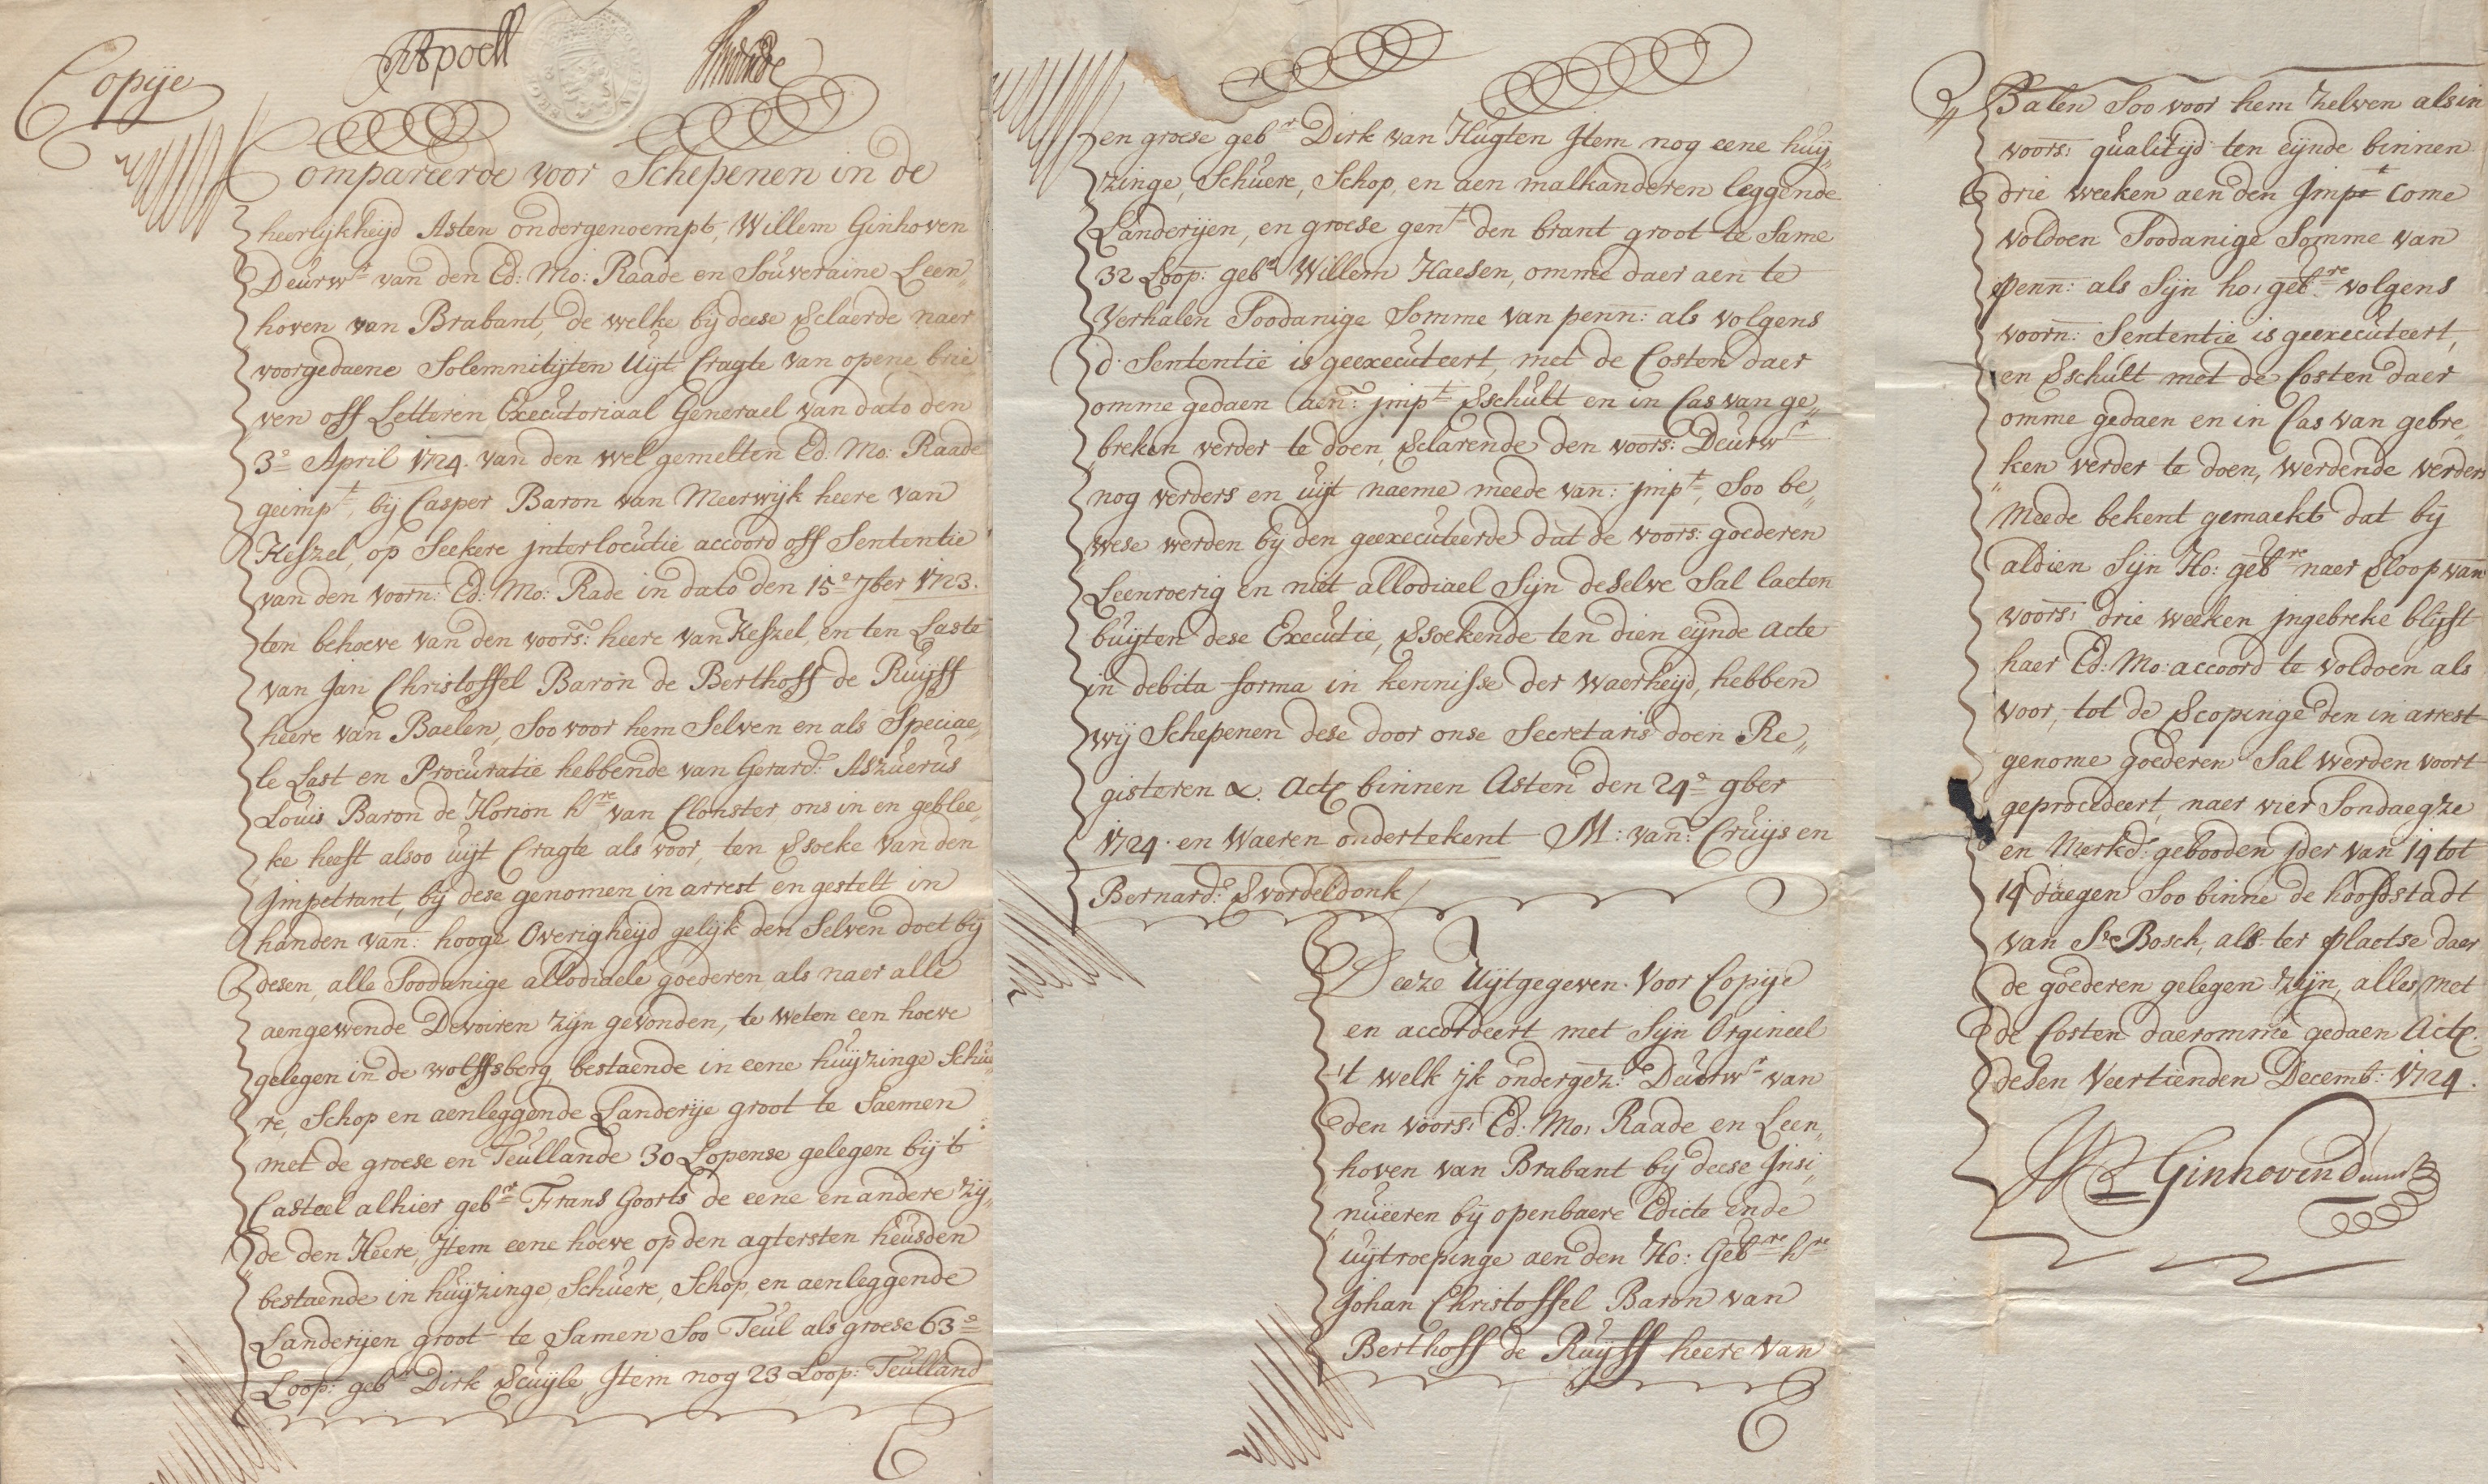 Copije
Compareerde voor Schepenen in de
heerlijkheijd Asten ondergenoempt, Willem Ginhoven
Deurwr. van den Ed: Mo: Raade en Souveraine Leen„
hoven van Brabant, de welke bij deese verclaerde naer
voorgedaene Solemnitijten Uijt Cragte van opene brie
ven off Letteren Executoriaal Generael van dato den
3e April 1724. van den wel gemelten Ed: Mo: Raade
geimpt, bij Casper Baron van Meerwijk heere van
Keszel, op Seekere jnterlocutie accoord off Sententie
van den voorn: Ed: Mo: Rade in dato den 15e 7ber 1723.
ten behoeve van den voors: heere van Keszel, en ten Laste
van Jan Christoffel Baron de Berthoff de Ruijff
heere van Baelen, Soo voor hem Selven en als Speciae„
le Last en Procuratie hebbende van Gerard: Aszuerus
Louis Baron de Horion hre van Clonster ons in en geblee„
ke heeft alsoo uijt Cragte als voor, ten versoeke van den
Jmpetrant, bij dese genomen in arrest en gestelt in
handen van: hooge Overigheijd gelijk den Selven doet bij
desen, alle Soodanige allodiaele goederen, als naer alle
aengewende Devoiren zijn gevonden, te weten een hoeve
gelegen in de wolffsberg, bestaende in eene huijzinge Schu„
re, Schop en aenleggende Landerije groot te Saemen
met de groese en Teullande 30 Lopense gelegen bij 't
Casteel alhier gebr. Frans Goorts de eene en andere zij„
de den Heere, Jtem eene hoeve op den agtersten heusden
bestaende in huijzinge, Schuere, Schop, en aenleggende
Landerijen groot te Samen Soo Teul als groese 63e
Loop: gebr Dirk vercuijle, Jtem nog 23 Loop: Teulland
en groese gebr Dirk van Hugten Jtem nog eene huij„
zinge, Schuere, Schop, en aen malkanderen leggende
Landerijen, en groese gent den brant groot te Same
32 Loop: gebr Willem Haesen, omme daer aen te
Verhalen Soodanige Somme van penn: als volgens
d. Sententie is geexecuteert, met de Costen daer
omme gedaen aen: jmpt verschult, en in Cas van ge„
breken verder te doen, verclarende den voors: Deurwr
nog verders en uijt naeme meede van: jmpt, Soo be„
wese werden bij den geexecuteerde dat de voors: goederen
Leenroerig en niet allodiael Sijn deselve Sal laeten
buijten dese Executie, versoekende ten dien eijnde acte
in debita forma in kennisse der waerheijd, hebben
wij Schepenen dese door onse Secretaris doen Re„
gisteren &. Acte binnen Asten den 24e 9ber
1724. en Waeren ondertekent M: van: Cruijs en
Bernard: Vervordeldonk
Deeze Uijtgegeven Voor Copije
en accordeert met Sijn Orgineel
't welk ijk ondergez: Deurwr van
den voors: Ed: Mo: Raade en Leen„
hoven van Brabant bij deese Jnsi„
nueeren bij openbaere Edicte ende
uijtroepinge aen den Ho: Gebre hre
Johan Christoffel Baron van
Berthoff de Ruijff heere van
Balen Soo voor hem zelven als in
voors: qualitijd ten eijnde binnen
drie weeken aen den Jmpt Come
voldoen Soodanige Somme van
penn: als Sijn ho: gebre volgens
voorn: Sententie is geexecuteert,
en verschult met de Costen daer
omme gedaen en in Cas van gebre„
ken verder te doen, werdende verders
Meede bekent gemaekt dat bij
aldien Sijn Ho: gebre naer verloop van
voors: drie weeken jngebreke blijft
haer Ed: Mo: accoord te voldoen als
voor, tot de vercopinge den in arrest
genome goederen Sal werden voort
geprocedeert, naer vier Sondaegze
en Merkd: gebooden jder van 14 tot
14 daegen Soo binne de hooftstadt
van S'e Bosch, als ter plaetse daer
de goederen gelegen zijn, alles met
de Costen daeromme gedaen Acte.
desen Veertienden Decemb: 1724.
Ginhoven Deurwr